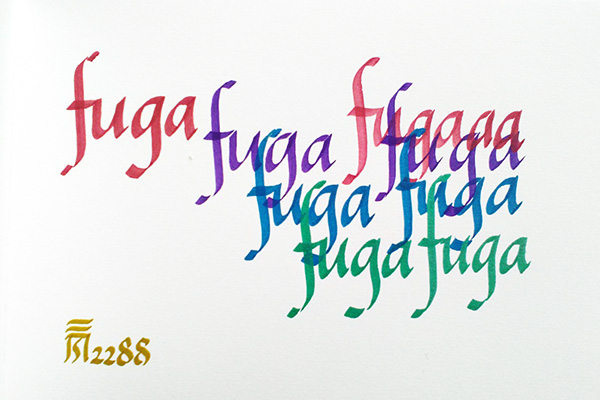 fuga
fuga fuga
fuga fuga
fuga fuga
2288